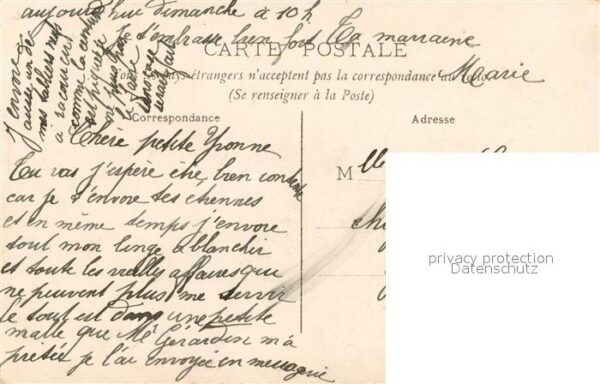 aujourd'hui dimanche à 10 h
Je t'embrasse bien fort Ta marraine
Marie
CARTE POSTALE
Tous les pays étrangers n'acceptent pas la correspondance au
(Se renseigner à la Poste)
Correspondance
Adresse
J'envoie
aussi un de
mes tabliers noirs
à racourcir
comme la ceinture
est piquée
on peut
le faire
Chère petite Yvonne
Tu vas j'espère être bien contente
car je t'envoie tes étrennes
et en même temps j'envoie
tout mon linge à blanchir
et toute les vieilles affaires qui
ne peuvent plus me servir
le tout est dans une petite
malle que Me Gérardin m'a
prêtée je l'ai envoyée en messagerie
Mlle
privacy protection
Datenschutz